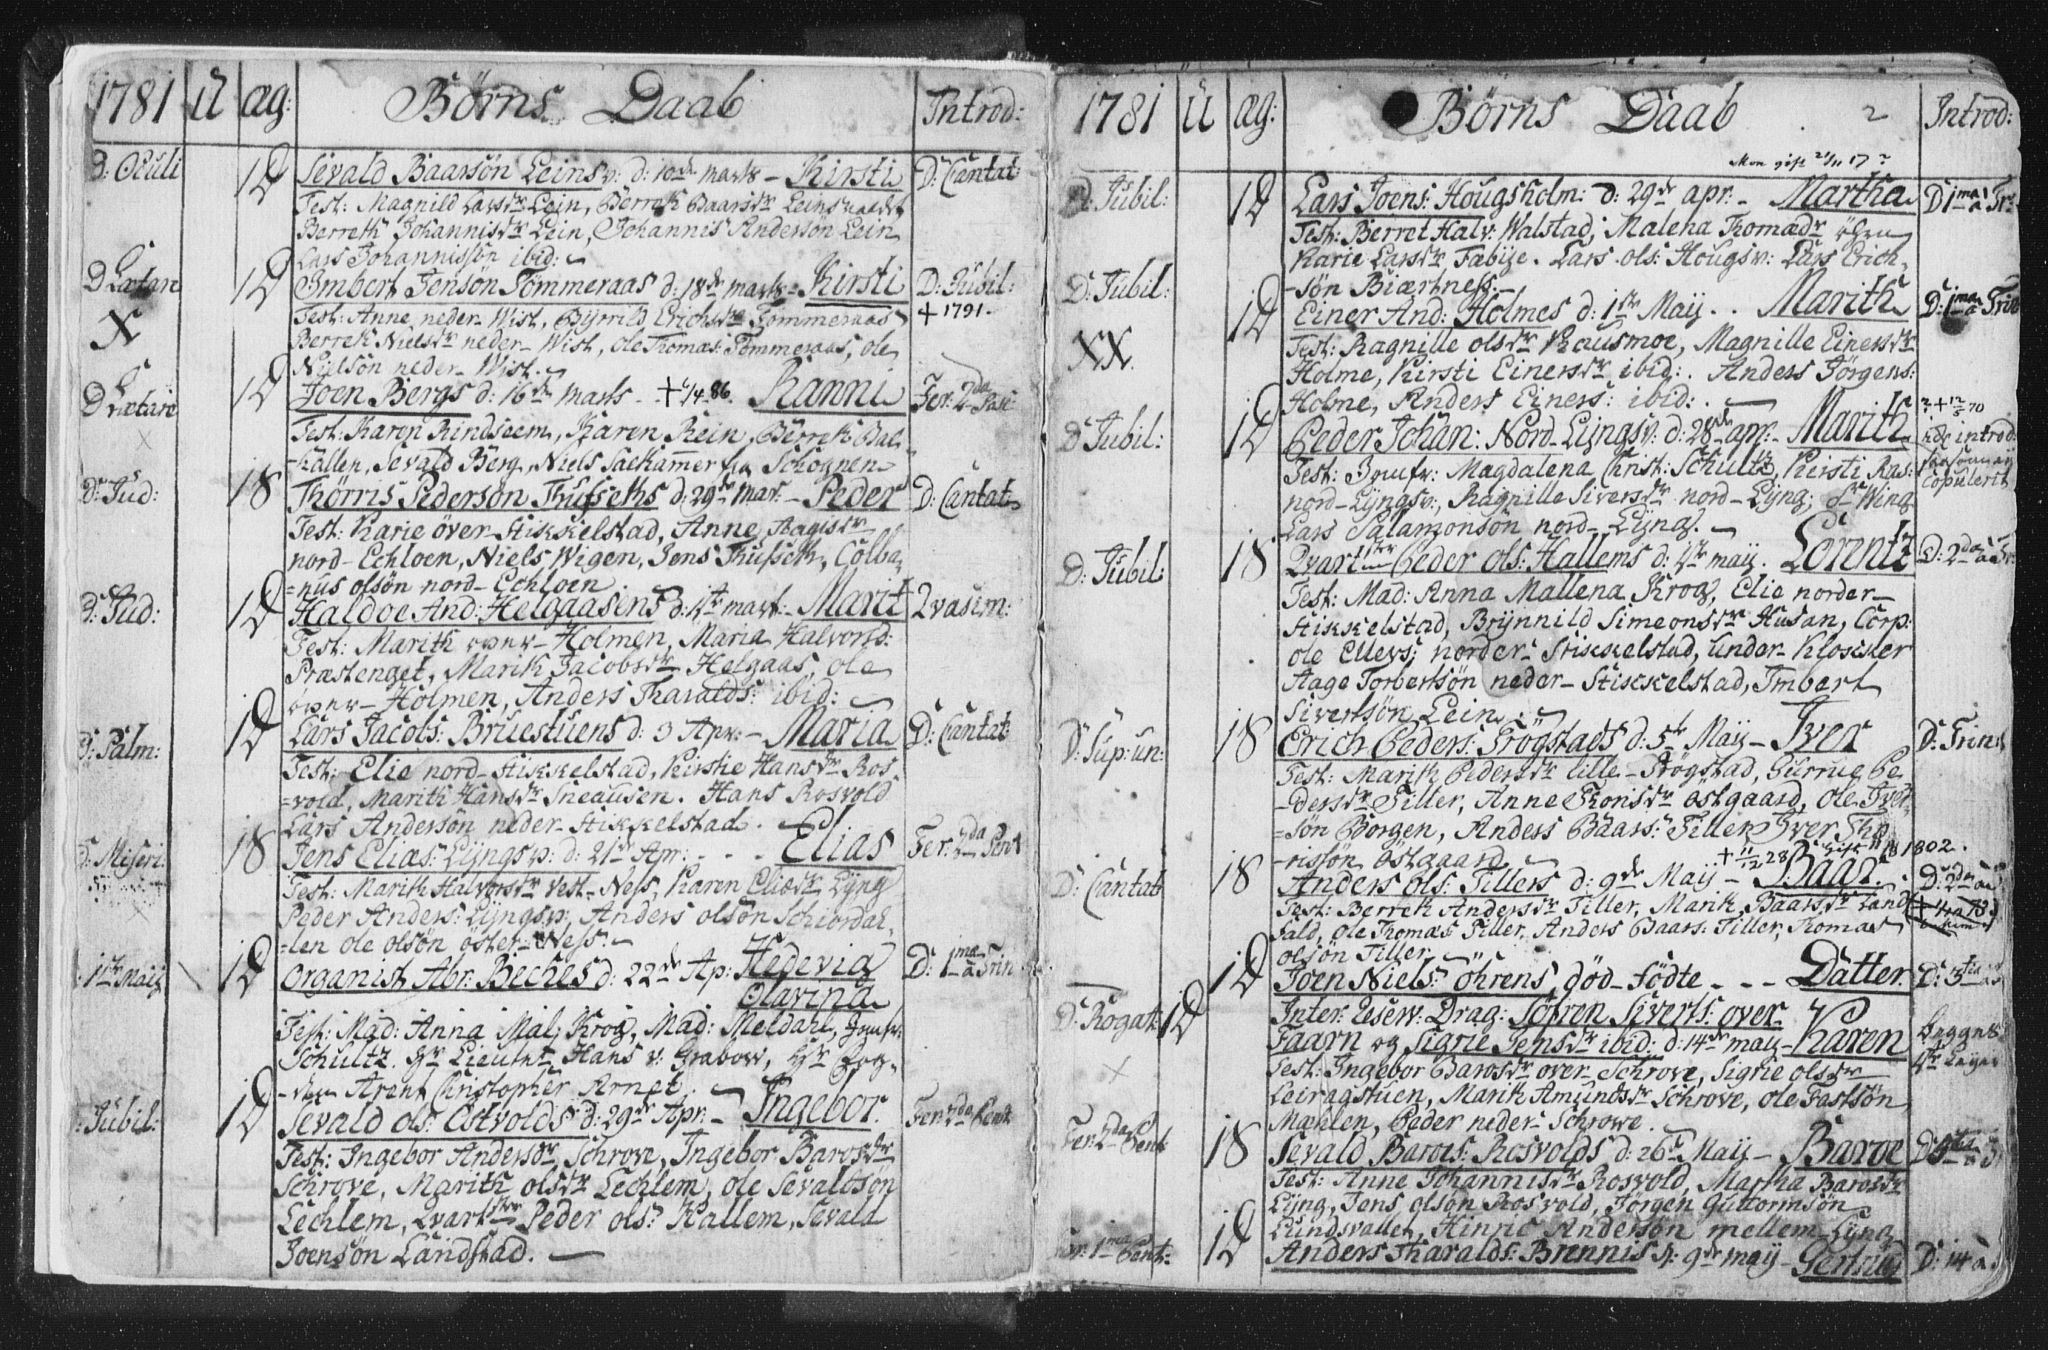 1781 U æg: Børns Daab Introd:
D: Oculi 1 D Sevald Baarsøn Leinsv: d: 10de Marts - Kirsti D: Cantat:
Test: Magnild Larsdr Lein, Berreth Baarsdr Leinsvaldet
Berreth Johannisdr Lein, Johannis Andersøn Lein
Lars Johannissøn ibid:
D Lætare 1 D Imbert Jensøn Tømmeraas d: 18de Marts - Kirsti D: Jubil:
X Test: Anne neder-Wist, Byrrild Erichsdr Tømmeraas + 1791.
Berreth Nielsdr neder-Wist, Ole Thomas: Tømmeraas, ole
Nielsøn neder-Wist.
D Lætare 1 D Joen Bergs d: 16de Marts - + 1/4 86. Ranni Fer: 2da Pasc
Test: Karen Rindseem, Karen Rein, Berreth Bal-
-hallen, Sevald Berg, Niels Saekamer fra Schognen
D: Jud: 18 Thørris Pedersøn Thufseths d: 29de Mar: - Peder D: Cantat:
Test: Karie över-Stikkelstad, Anne Aagesdr
nord-Echloen, Niels Wigen, Jens Thufseth, Colba-
=nus olsøn nord-Echloen
D: Jud: 1 D Haldoe And: Helgaasens d: 1te mart: - Marit Qvasim:
Test: Marith over-Holmen, Maria Halvorsd:
Præstenget, Marith Jacobsdr Helgaas ole
över-Holmen, Anders Tharalds: ibid:
D: Palm: 1 D Lars Jacobs: Bruestuens d: 3 Apr: - Maria D: Cantat:
Test: Elie nord-Stikkelstad, Kirstie Hansdr Ros
=vold, Marith Hansdr Sneausen. Hans Rosvold
Lars Andersøn neder-Stikkelstad.
D: Miseri: 18 Jens Elias: Lyngsv: d: 21de Apr: . . . Elias Fer: 2da Pent
Test: Marith Halvorsdr Vest-Ness, Karen Eliædr Lyng
Peder Anders: Lyngsv: Anders olsøn Schiordal-
=len ole olsøn öster-Ness.
1te Maij 1 D Organist Abr: Beches d: 22de Ap: Hedevig D: 1ma a Trin
Olavina
Test: Mad: Anna Mal: Krog, Mad: Meldahl, Jomfr:
Schultz. Hr Lieutnt Hans v: Grabow, Hr Fog-
-den Arent Christopher Arnet.
Jubil: 1 D Sevald ols: Østvolds d: 29de Apr: - Ingebor. Fer: 2da Pent
Test: Ingebor Andersdr Schrove, Ingebor Barosdr
Schrove, Marith olsdr Lechlem, ole Sevaldsøn
Lechlem, Qvartmstr Peder ols: Hallem, Sevald
Joensøn Landstad.
1781 U æg: Børns Daab 2 Introd:
D: Jubil: 1 D Lars Joens: Hougsholm: d: 29de apr. - Martha D 1ma a Tr:
Test: Berret Halv: Walstad, Malena Thomædr
Karie Larsdr Fæbye. Lars ols: Hougsv: Lars Erich-
-søn Biærtness.
D: Jubil: 1 D Einer And: Holmes d: 1ste Maij . . Marith D: 1ma a Trin
XX. Test: Ragnille olsdr Kausmoe, Magnille Einersdr
Holme, Kirsti Einersdr ibid: . Anders Jörgens:
Holme, Anders Einers: ibid:
D: Jubil: 1 D Peder Johan: Nord-Lyngsv: d: 28de apr: - Marith introd:
Test: Jomfr: Magdalena Christ: Schultz, Kirsti Ras:
nord-Lyngsv:, Ragnille Siversdr nord-Lyng; Hr Wing copulerit
Lars Salamonsøn nord-Lyng.
D: Jubil: 18 Qvartmstr Peder ols: Hallems d: 4te maij. Lorentz D: 2da a Tr:
Test: Mad: Anna Mallena Krog, Elie norder-
Stikkelstad, Brynnild Simeonsdr Husan, Corp:
ole Ellevs; norder-Stikkelstad, Under-Klokker
Aage Torbertsøn neder-Stikkelstad, Imbert
Sivertsøn Lein.
D: Sup: un: 18 Erich Peders: Trögstads d: 5te Maij - Iver D: Trin:
Test: Marith Pedersdr lille-Trögstad, Gurrue Pe-
-dersdr Tiller, Anne Thorisdr Ostgaard, ole Iver-
=søn Borgen, Anders Baars: Tiller, Iver Tho-
-rissøn Østgaard + 11/2 28 1802.
D: Cantat 18 Anders ols: Tillers d: 9de Maij - Baar. D: 2da a
Test: Berreth Andersdr Tiller, Marith Baarsdr Land-
fald, ole Thomæs Tiller, Anders Baars: Tiller, Thomas
olsøn Tiller
1 D Joen Niels: öhrens, död-födte - - - Datter. D: 3tia a
D: Rogat: 1 D Inter: Reserv: Drag: Søfren Siverts: over-
Faarn og Sigrie Jensdr ibid: d: 14de maij - Karen begge
Test: Ingebor Barosdr over-Schrove, Sigrie olsdr
Leiragstuen, Marith Amundsdr Schrove, ole Fartsøn
Mæhlen, Peder neder-Schrowe.
Fer: 2da Pent 18 Sevald Barois: Rosvolds d: 26de Maij - Baroe D:
Test: Anne Johannisdr Rosvold, Martha Barosdr
Lyng, Jens olsøn Rosvold, Jörgen Guttormsøn
Lundsvallet, Hinric Andersøn mellem-Lyng
Fer: 1ma Pent: 1 D Anders Tharalds: Brennis d: 9de maij - Gertrue D: 14 a